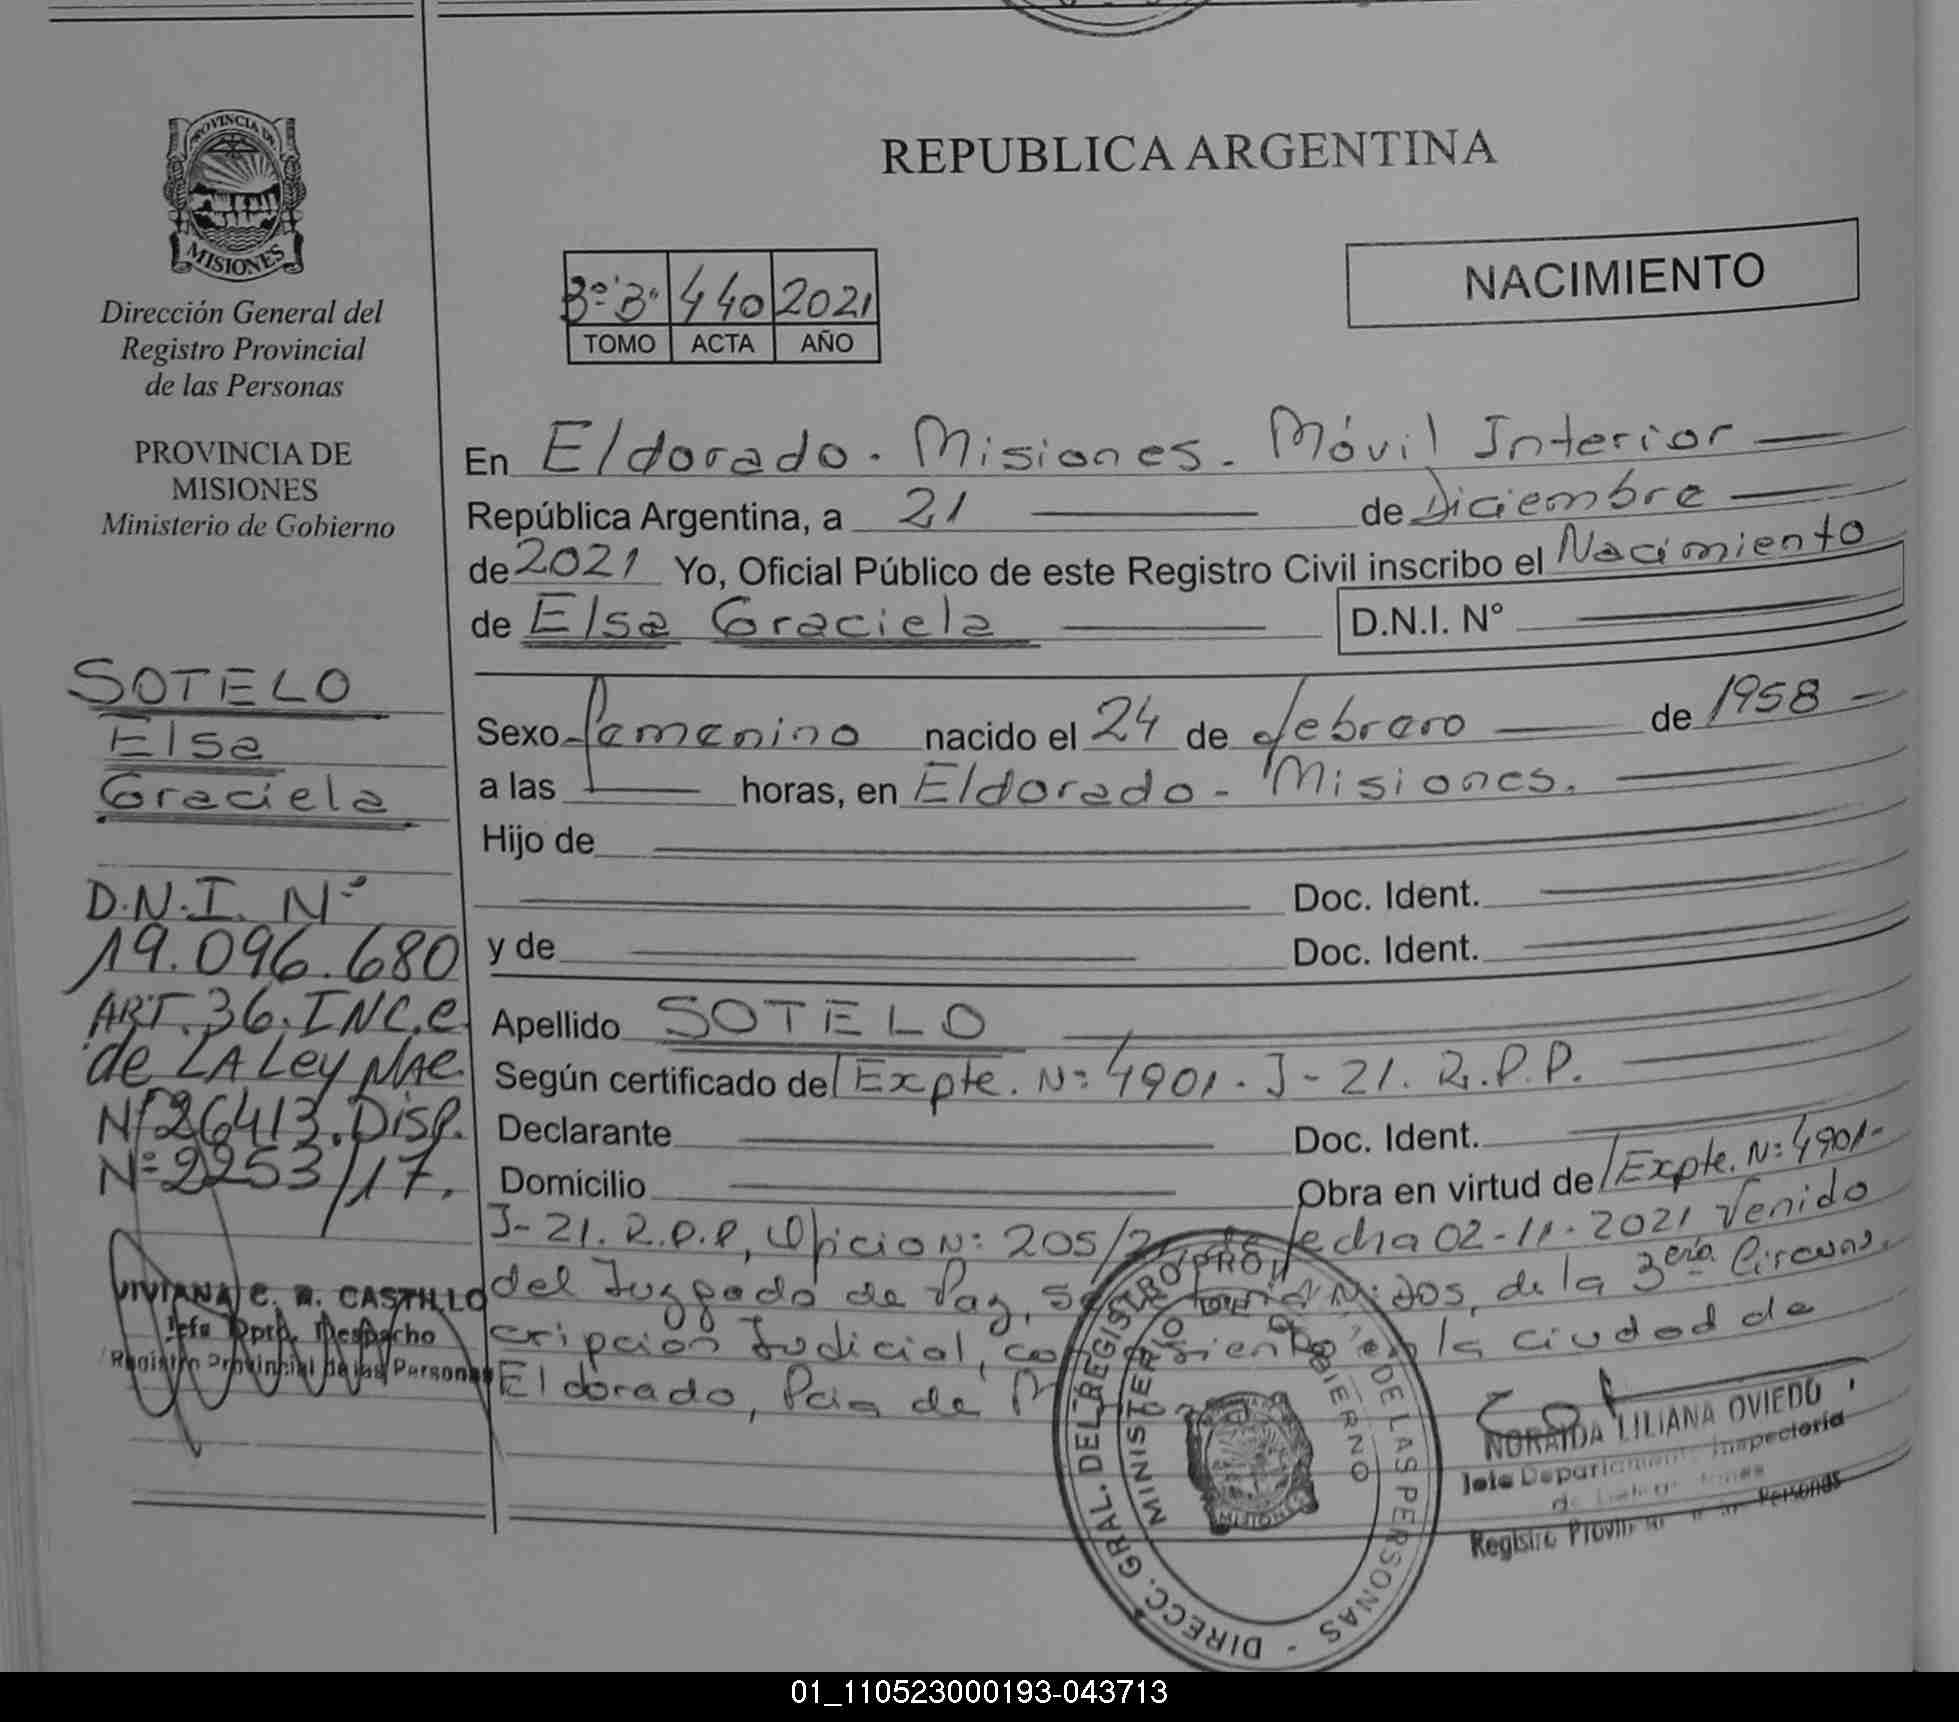 PROVINCIA DE
MISIONES
Dirección General del
Registro Provincial
de las Personas
PROVINCIA DE
MISIONES
Ministerio de Gobierno
SOTELO
Elsa
Graciela
D.N.I. Nº
19.096.680
ART. 36. INC. e
de LA Ley NAC.
Nº 26413. Disp.
Nº 2253/17.
VIVIANA C. R. CASTILLO
Jefa Dpto. Despacho
Registro Provincial de las Personas
REPUBLICA ARGENTINA
3º "B" 440 2021
TOMO ACTA AÑO
NACIMIENTO
En Eldorado. Misiones. Móvil Interior
República Argentina, a 21 de Diciembre
de 2021 Yo, Oficial Público de este Registro Civil inscribo el Nacimiento
de Elsa Graciela D.N.I. N°
Sexo Femenino nacido el 24 de febrero de 1958
a las horas, en Eldorado - Misiones.
Hijo de
Doc. Ident.
y de Doc. Ident.
Apellido SOTELO
Según certificado del Expte. Nº 4901. J-21. R.P.P.
Declarante Doc. Ident.
Domicilio Obra en virtud del Expte. Nº 4901-
J-21. R.P.P, Oficio Nº 205/21 de fecha 02-11-2021 Venido
del Juzgado de Paz, Nº Dos, de la 3era Circuns.
cripcion Judicial, con asiento en la ciudad de
Eldorado, Pcia de
DIRECC. GRAL. DEL REGISTRO PROV. DE LAS PERSONAS
MINISTERIO DE GOBIERNO
MISIONES
NORAIDA LILIANA OVIEDO
Jefe Departamento Inspectoria
Registro Personas
01_110523000193-043713